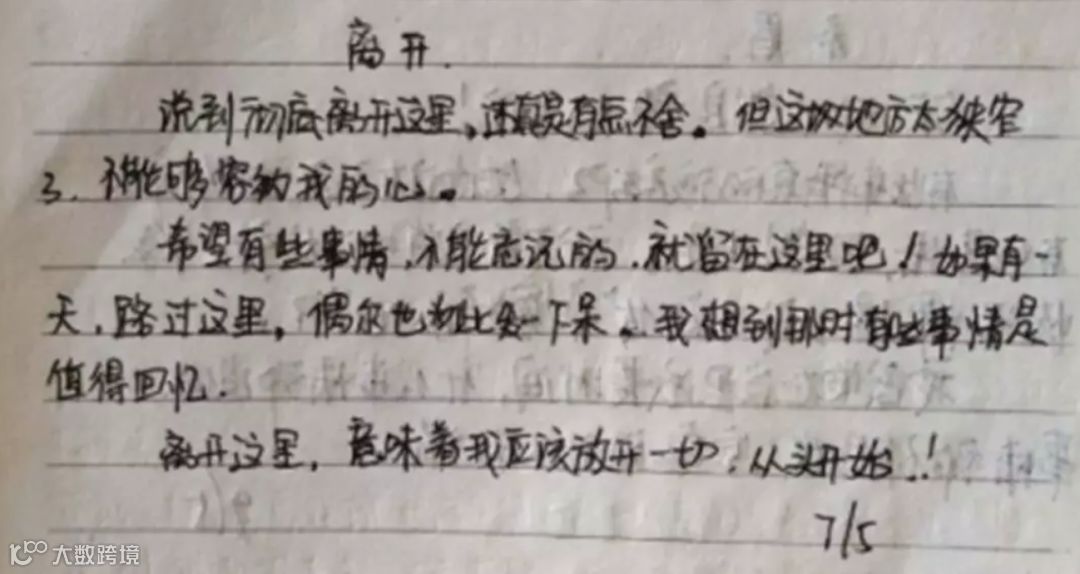 离开.
说到彻底离开这里,还真是有点不舍。但这块地方太狭窄
了.不能够容纳我的心。
希望有些事情,不能忘记的,就留在这里吧!如果有一
天,路过这里,偶尔也 会一下 。我想到那时有些事情是
值得回忆.
离开这里,意味着我应该放开一切,从头开始..!
7/5
大数跨境